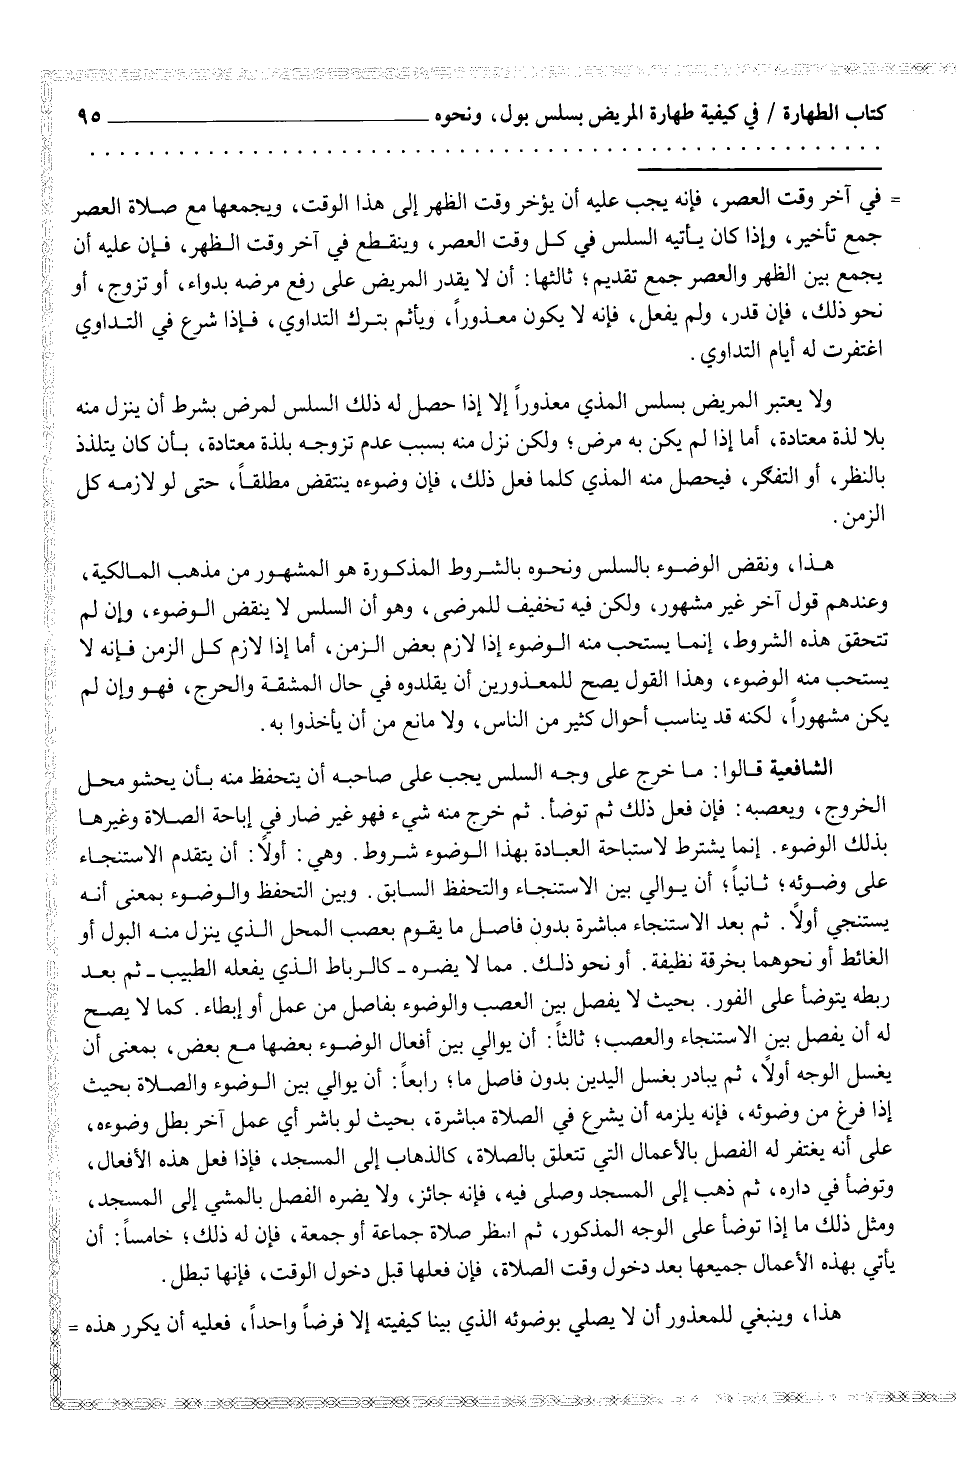 كتاب الطهارة / في كيفية طهارة المريض بسلس بول، ونحوه ٩٥
= في آخر وقت العصر، فإنه يجب عليه أن يؤخر وقت الظهر إلى هذا الوقت، ويجمعها مع صلاة العصر
جمع تأخير، وإذا كان يأتيه السلس في كل وقت العصر، وينقطع في آخر وقت الظهر، فإن عليه أن
يجمع بين الظهر والعصر جمع تقديم؛ ثالثها: أن لا يقدر المريض على رفع مرضه بدواء، أو تزوج، أو
نحو ذلك، فإن قدر، ولم يفعل، فإنه لا يكون معذوراً، ويأثم بترك التداوي، فإذا شرع في التداوي
اغتفرت له أيام التداوي.
ولا يعتبر المريض بسلس المذي معذوراً إلا إذا حصل له ذلك السلس لمرض بشرط أن ينزل منه
بلا لذة معتادة، أما إذا لم يكن به مرض؛ ولكن نزل منه بسبب عدم تزوجه بلذة معتادة، بأن كان يتلذذ
بالنظر، أو التفكر، فيحصل منه المذي كلما فعل ذلك، فإن وضوءه ينتقض مطلقاً، حتى لو لازمه كل
الزمن.
هذا، ونقض الوضوء بالسلس ونحوه بالشروط المذكورة هو المشهور من مذهب المالكية،
وعندهم قول آخر غير مشهور، ولكن فيه تخفيف للمرضى، وهو أن السلس لا ينقض الوضوء، وإن لم
تتحقق هذه الشروط، إنما يستحب منه الوضوء إذا لازم بعض الزمن، أما إذا لازم كل الزمن فإنه لا
يستحب منه الوضوء، وهذا القول يصح للمعذورين أن يقلدوه في حال المشقة والحرج، فهو وإن لم
يكن مشهوراً، لكنه قد يناسب أحوال كثير من الناس، ولا مانع من أن يأخذوا به.
الشافعية قالوا: ما خرج على وجه السلس يجب على صاحبه أن يتحفظ منه بأن يحشو محل
الخروج، ويعصبه: فإن فعل ذلك ثم توضأ. ثم خرج منه شيء فهو غير ضار في إباحة الصلاة وغيرها
بذلك الوضوء. إنما يشترط لاستباحة العبادة بهذا الوضوء شروط. وهي: أولاً: أن يتقدم الاستنجاء
على وضوئه؛ ثانياً؛ أن يوالي بين الاستنجاء والتحفظ السابق. وبين التحفظ والوضوء بمعنى أنه
يستنجي أولاً. ثم بعد الاستنجاء مباشرة بدون فاصل ما يقوم بعصب المحل الذي ينزل منه البول أو
الغائط أو نحوهما بخرقة نظيفة. أو نحو ذلك. مما لا يضره ـ كالرباط الذي يفعله الطبيب ـ ثم بعد
ربطه يتوضأ على الفور. بحيث لا يفصل بين العصب والوضوء بفاصل من عمل أو إبطاء. كما لا يصح
له أن يفصل بين الاستنجاء والعصب؛ ثالثاً: أن يوالي بين أفعال الوضوء بعضها مع بعض، بمعنى أن
يغسل الوجه أولاً، ثم يبادر بغسل اليدين بدون فاصل ما؛ رابعاً: أن يوالي بين الوضوء والصلاة بحيث
إذا فرغ من وضوئه، فإنه يلزمه أن يشرع في الصلاة مباشرة، بحيث لو باشر أي عمل آخر بطل وضوءه،
على أنه يغتفر له الفصل بالأعمال التي تتعلق بالصلاة، كالذهاب إلى المسجد، فإذا فعل هذه الأفعال،
وتوضأ في داره، ثم ذهب إلى المسجد وصلى فيه، فإنه جائز، ولا يضره الفصل بالمشي إلى المسجد،
ومثل ذلك ما إذا توضأ على الوجه المذكور، ثم انتظر صلاة جماعة أو جمعة، فإن له ذلك؛ خامساً: أن
يأتي بهذه الأعمال جميعها بعد دخول وقت الصلاة، فإن فعلها قبل دخول الوقت، فإنها تبطل.
هذا، وينبغي للمعذور أن لا يصلي بوضوئه الذي بينا كيفيته إلا فرضاً واحداً، فعليه أن يكرر هذه =